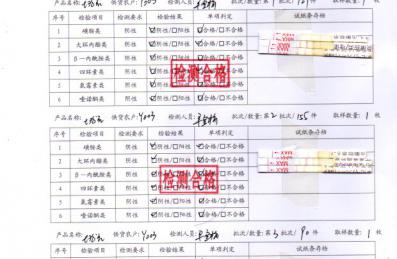 产品名称: 供货农户: 检测人员: 批次/数量: 第1批次/121件 取样数量: 1 枚
序号 检验项目 检测要求 检验结果 单项判定 试纸条存档
1 磺胺类 阴性 ☑阴性/□阳性 ☑合格/□不合格
2 大环内酯类 阴性 ☑阴性/□阳性 ☑合格/□不合格
3 β-内酰胺类 阴性 ☑阴性/□阳性 ☑合格/□不合格
4 四环素类 阴性 ☑阴性/□阳性 ☑合格/□不合格
5 氟霉素类 阴性 ☑阴性/□阳性 ☑合格/□不合格
6 喹诺酮类 阴性 ☑阴性/□阳性 ☑合格/□不合格
检测合格
产品名称: 供货农户: Y003 检测人员: 批次/数量: 第2批次/155件 取样数量: 1 枚
序号 检验项目 检测要求 检验结果 单项判定 试纸条存档
1 磺胺类 阴性 ☑阴性/□阳性 ☑合格/□不合格
2 大环内酯类 阴性 ☑阴性/□阳性 ☑合格/□不合格
3 β-内酰胺类 阴性 ☑阴性/□阳性 ☑合格/□不合格
4 四环素类 阴性 ☑阴性/□阳性 ☑合格/□不合格
5 氟霉素类 阴性 ☑阴性/□阳性 ☑合格/□不合格
6 喹诺酮类 阴性 ☑阴性/□阳性 ☑合格/□不合格
检测合格
产品名称: 供货农户: Y003 检测人员: 批次/数量: 第3批次/90件 取样数量: 1 枚
序号 检验项目 检测要求 检验结果 单项判定 试纸条存档